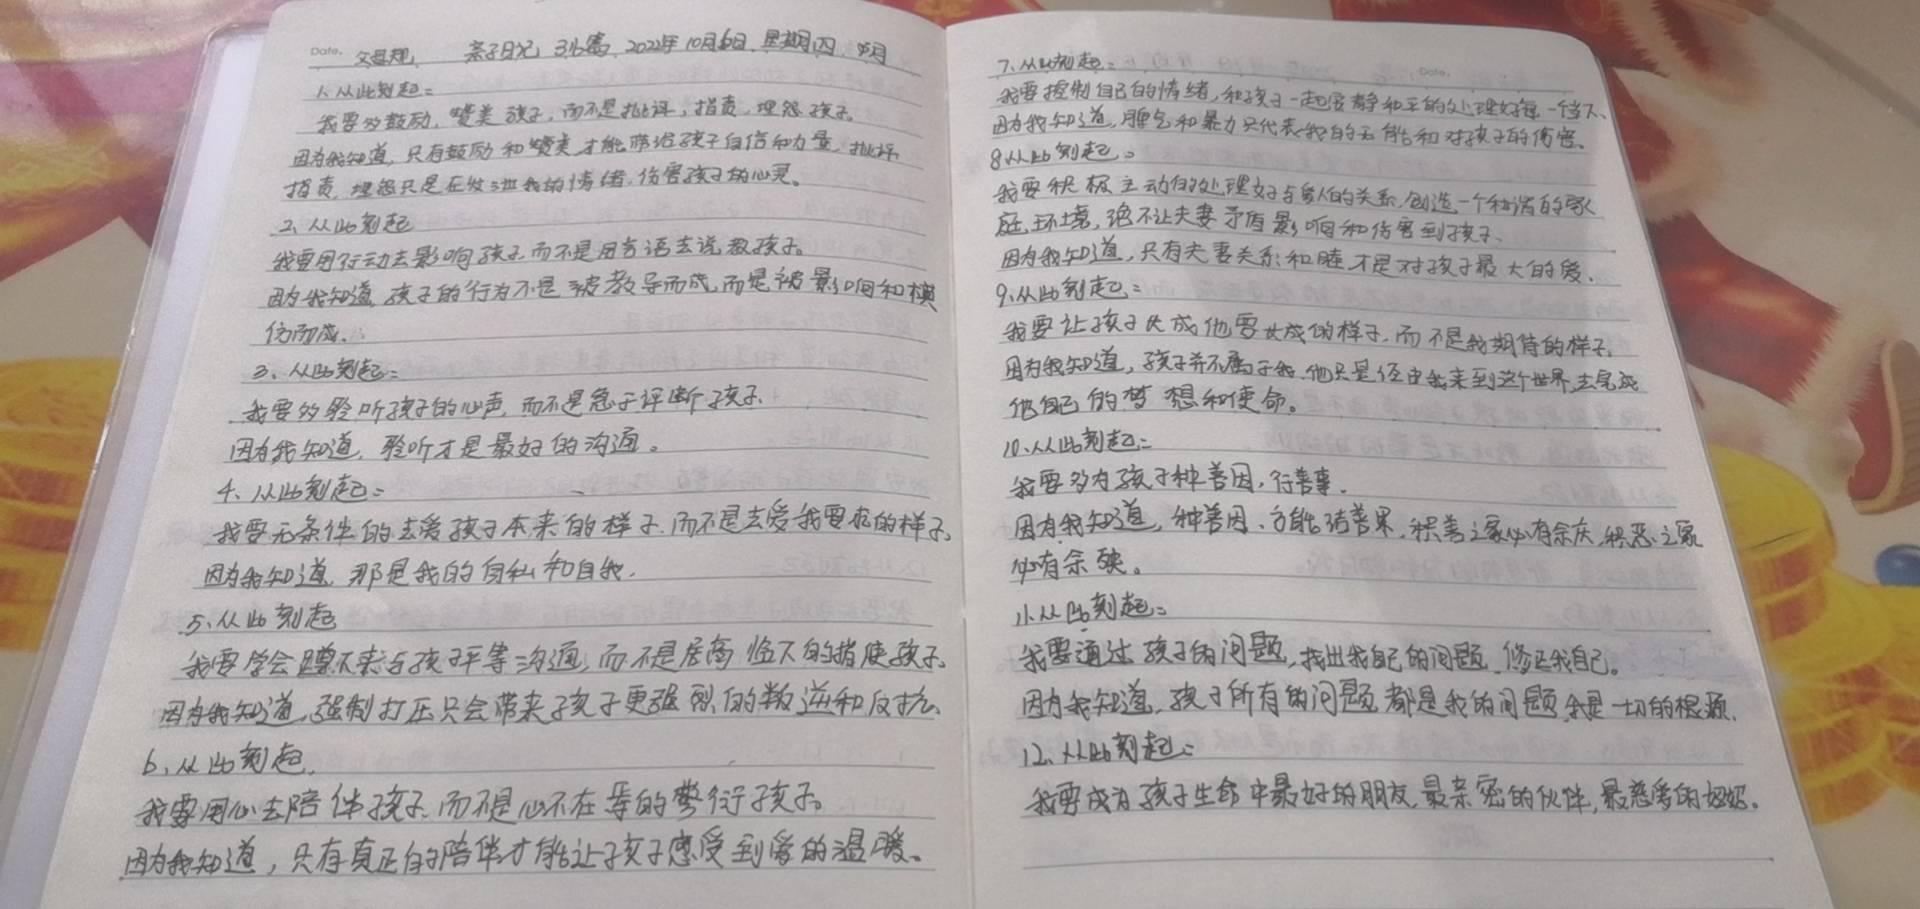 Date. 父母规 亲子日记 2022年10月6日 星期四
1、从此刻起:
我要多鼓励,赞美孩子,而不是批评,指责,埋怨孩子。
因为我知道,只有鼓励和赞美,才能带给孩子自信和力量,批评
指责,埋怨只是在发泄我的情绪,伤害孩子的心灵。
2、从此刻起
我要用行动去影响孩子,而不是用言语去说教孩子。
因为我知道,孩子的行为不是被教导而成,而是被影响和模
仿而成.
3、从此刻起:
我要多聆听孩子的心声,而不是急于评断孩子.
因为我知道,聆听才是最好的沟通。
4、从此刻起:
我要无条件的去爱孩子本来的样子,而不是去爱我要求的样子,
因为我知道,那是我的自私和自我.
5、从此刻起
我要学会蹲下来与孩子平等沟通,而不是居高临下的指使孩子.
因为我知道,强制打压只会带来孩子更强烈的叛逆和反抗.
6、从此刻起,
我要用心去陪伴孩子,而不是心不在焉的敷衍孩子。
因为我知道,只有真正的陪伴才能让孩子感受到爱的温暖。
7、从此刻起:
Date.
我要控制自己的情绪,和孩子一起安静和平的处理好每一个当下、
因为我知道,脾气和暴力只代表我的无能和对孩子的伤害。
8从此刻起:
我要积极主动的处理好与爱人的关系,创造一个和谐的家
庭环境,绝不让夫妻矛盾影响和伤害到孩子、
因为我知道,只有夫妻关系和睦,才是对孩子最大的爱.
9、从此刻起:
我要让孩子长成他要长成的样子,而不是我期待的样子.
因为我知道,孩子并不属于我,他只是经由我来到这个世界,去完成
他自己的梦想和使命。
10、从此刻起:
我要多为孩子种善因,行善事.
因为我知道,种善因、方能结善果,积善之家必有余庆,积恶之家
必有余殃。
11.从此刻起:
我要通过孩子的问题,找出我自己的问题,修正我自己。
因为我知道,孩子所有的问题都是我的问题,我是一切的根源.
12、从此刻起:
我要成为孩子生命中最好的朋友,最亲密的伙伴,最慈爱的妈妈。